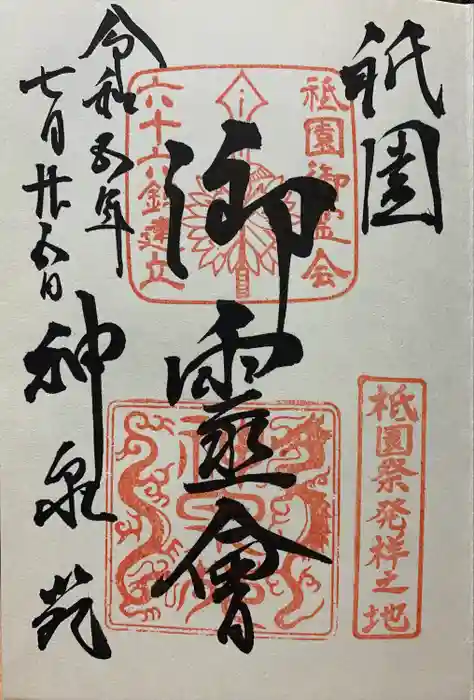 祇園
御霊會
令和五年
七月廿五日
神泉苑
祇園御霊会
六十六鉾建立
祇園祭発祥之地